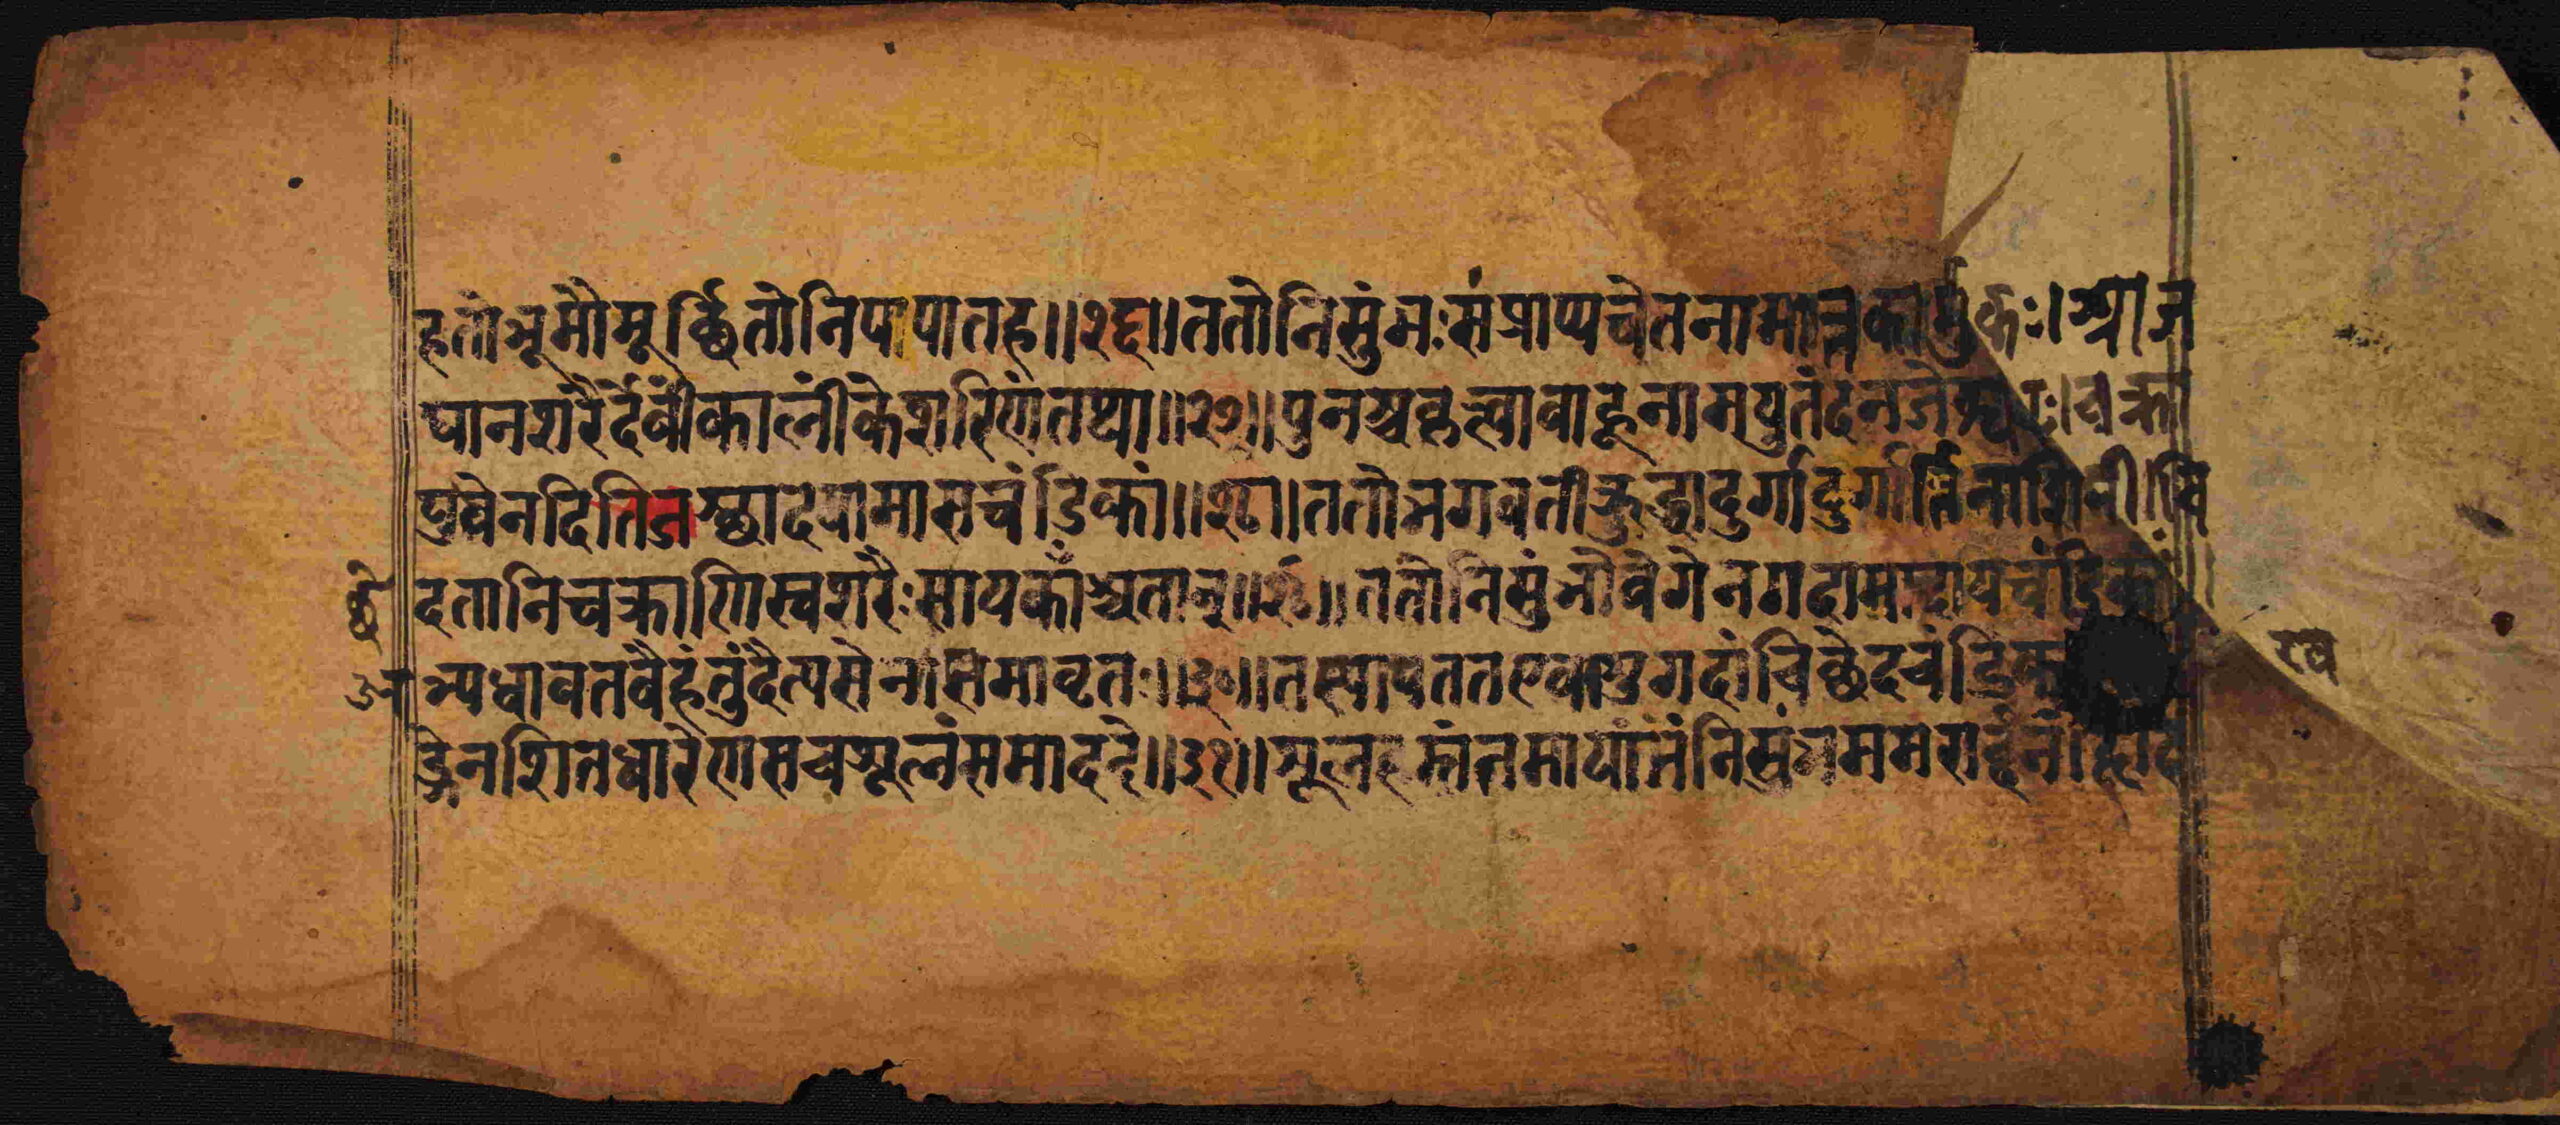 हतोभूमौमूर्छितोनिपपातह॥२६॥ततोनिसुंभःसंप्राप्यचेतनामात्तकार्मुकः।आज
घानशरैर्देवींकालींकेशरिणंतथा॥२७॥पुनश्चकृत्वाबाहूनामयुतंदनुजेश्वरः।चक्रा
युधेनदितिजश्छादयामासचंडिकां॥२८॥ततोभगवतीक्रुद्धादुर्गादुर्गार्त्तिनाशिनी।चि
छेदतानिचक्राणिस्वशरैःसायकाँश्चतान्॥२९॥ततोनिसुंभोवेगेनगदामादायचंडिकां।
अभ्यधावतवैहंतुंदैत्यसेनासमावृतः॥३०॥तस्यापततएवाशुगदांचिछेदचंडिका
खड्गेनशितधारेणसचशूलंसमाददे॥३१॥शूलहस्तंतमायांतंनिसुंभममरार्द्दनं।हृदि